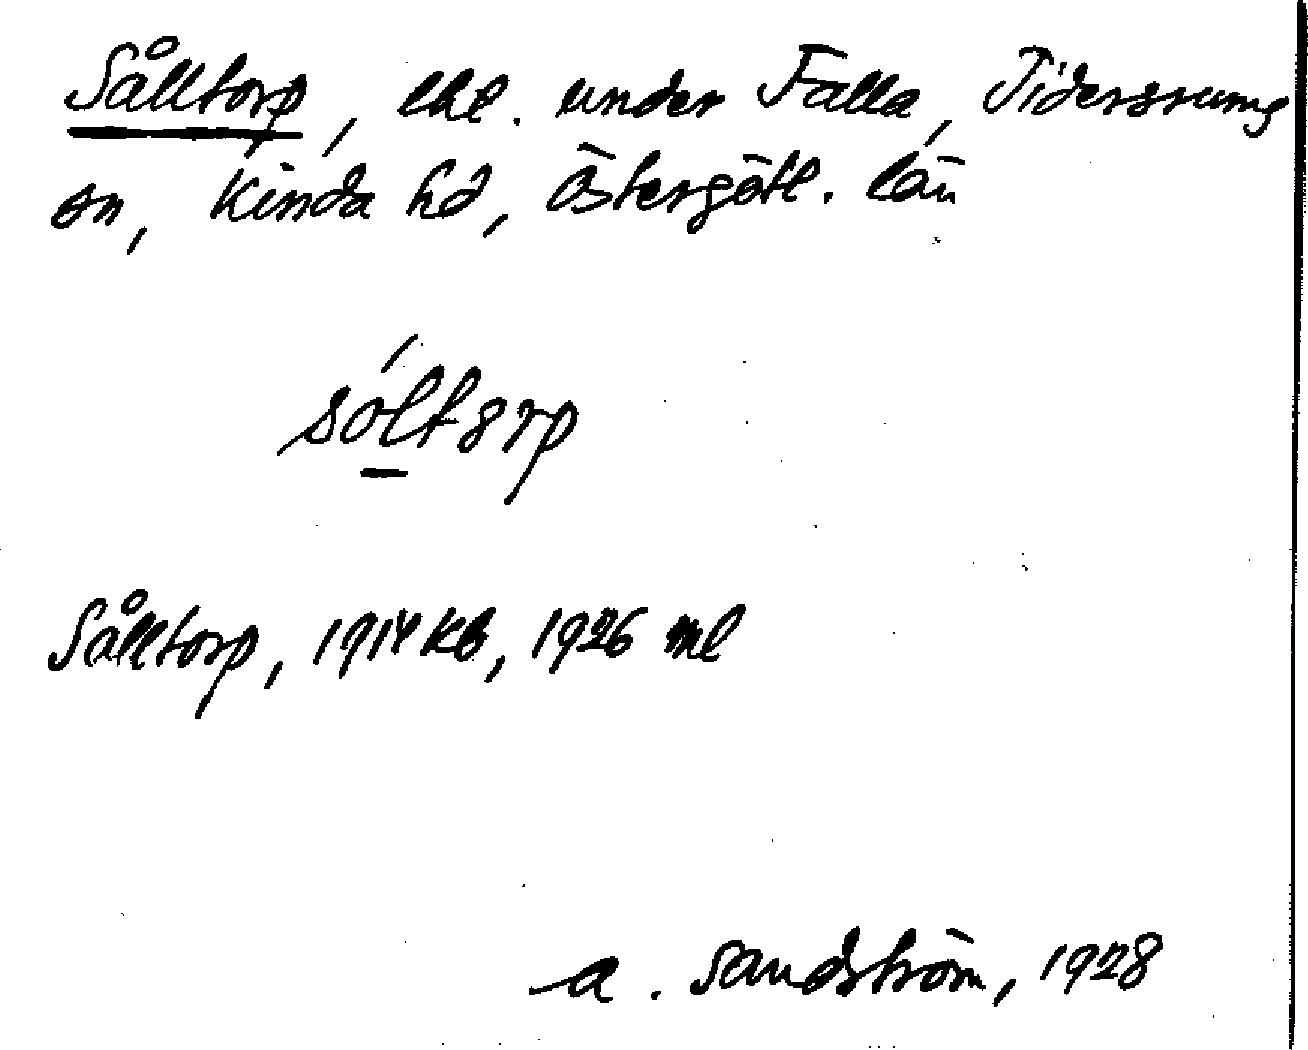 Sålltorp, lht. under Falla, Tidersrums
sn, Kinda hd, Östergötl. län
sóltorp
Sålltorp, 1914 kb, 1926 ml
A. Sandström, 1928